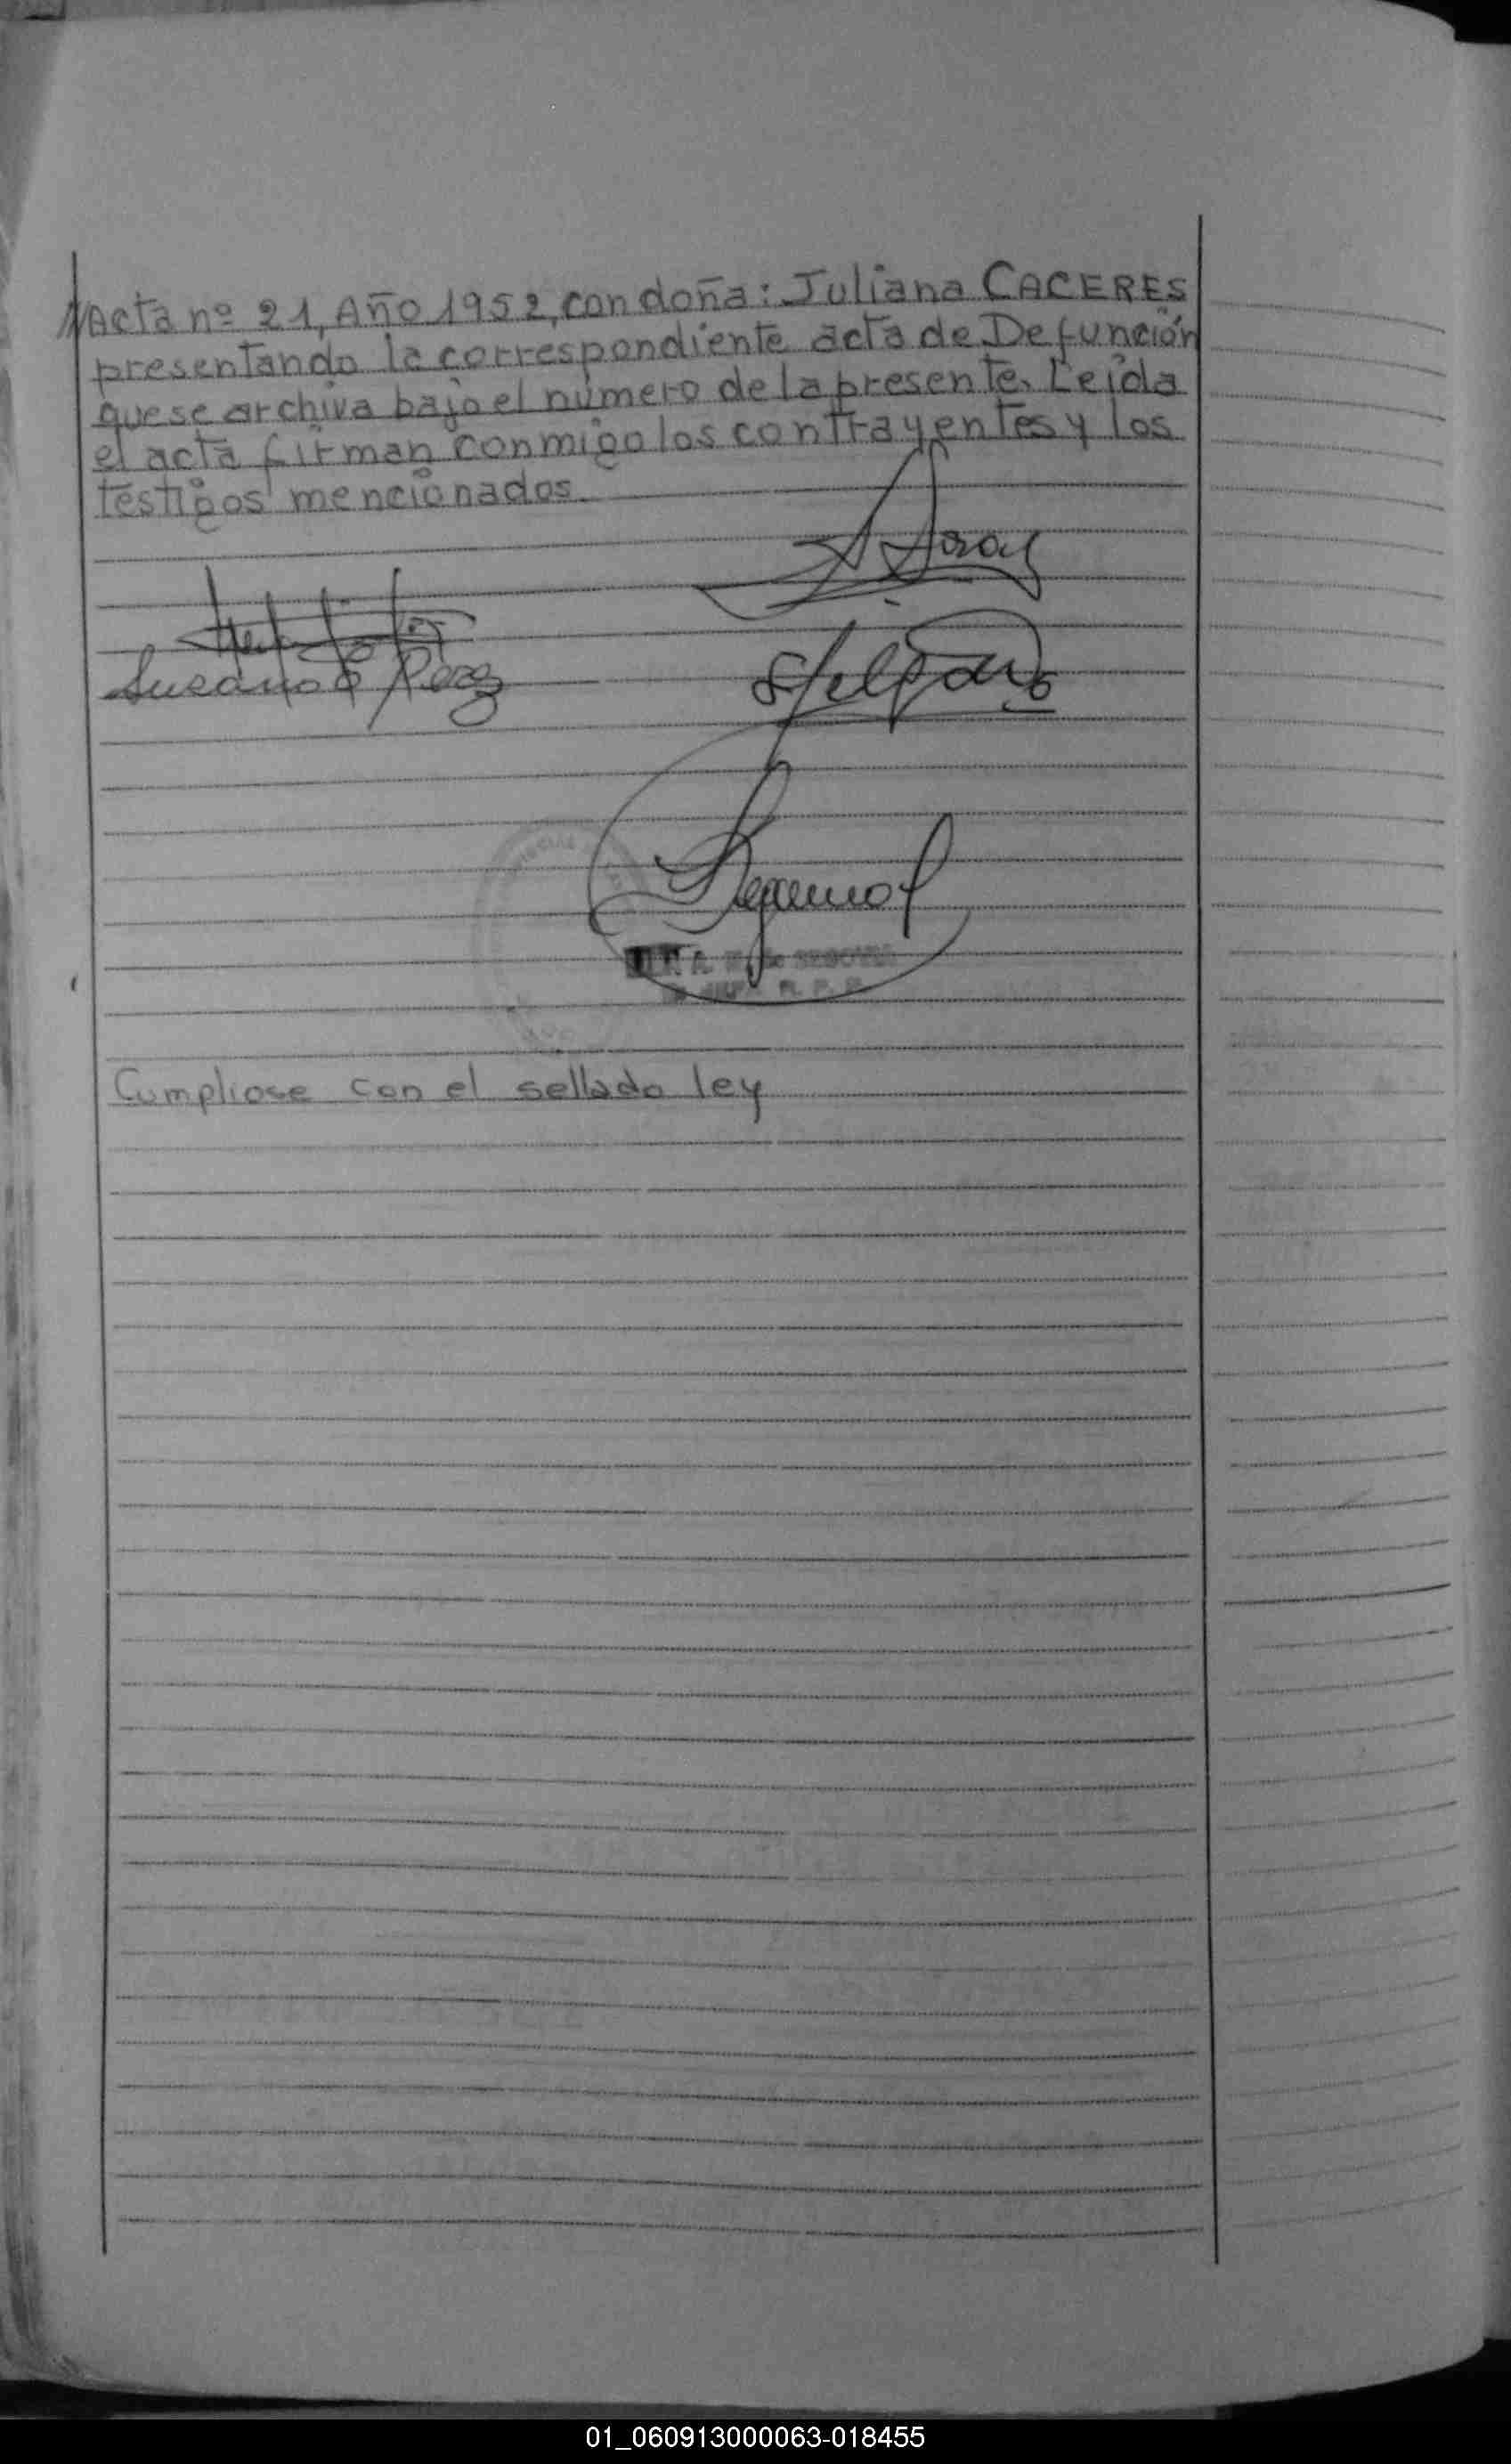 //Acta nº 21, Año 1952, con doña: Juliana CACERES
presentando la correspondiente acta de Defunción
que se archiva bajo el número de la presente. Leída
el acta firman conmigo los contrayentes y los
testigos mencionados.
Susana E Perez
SEGOVIA
Cumpliose con el sellado ley
01_060913000063-018455